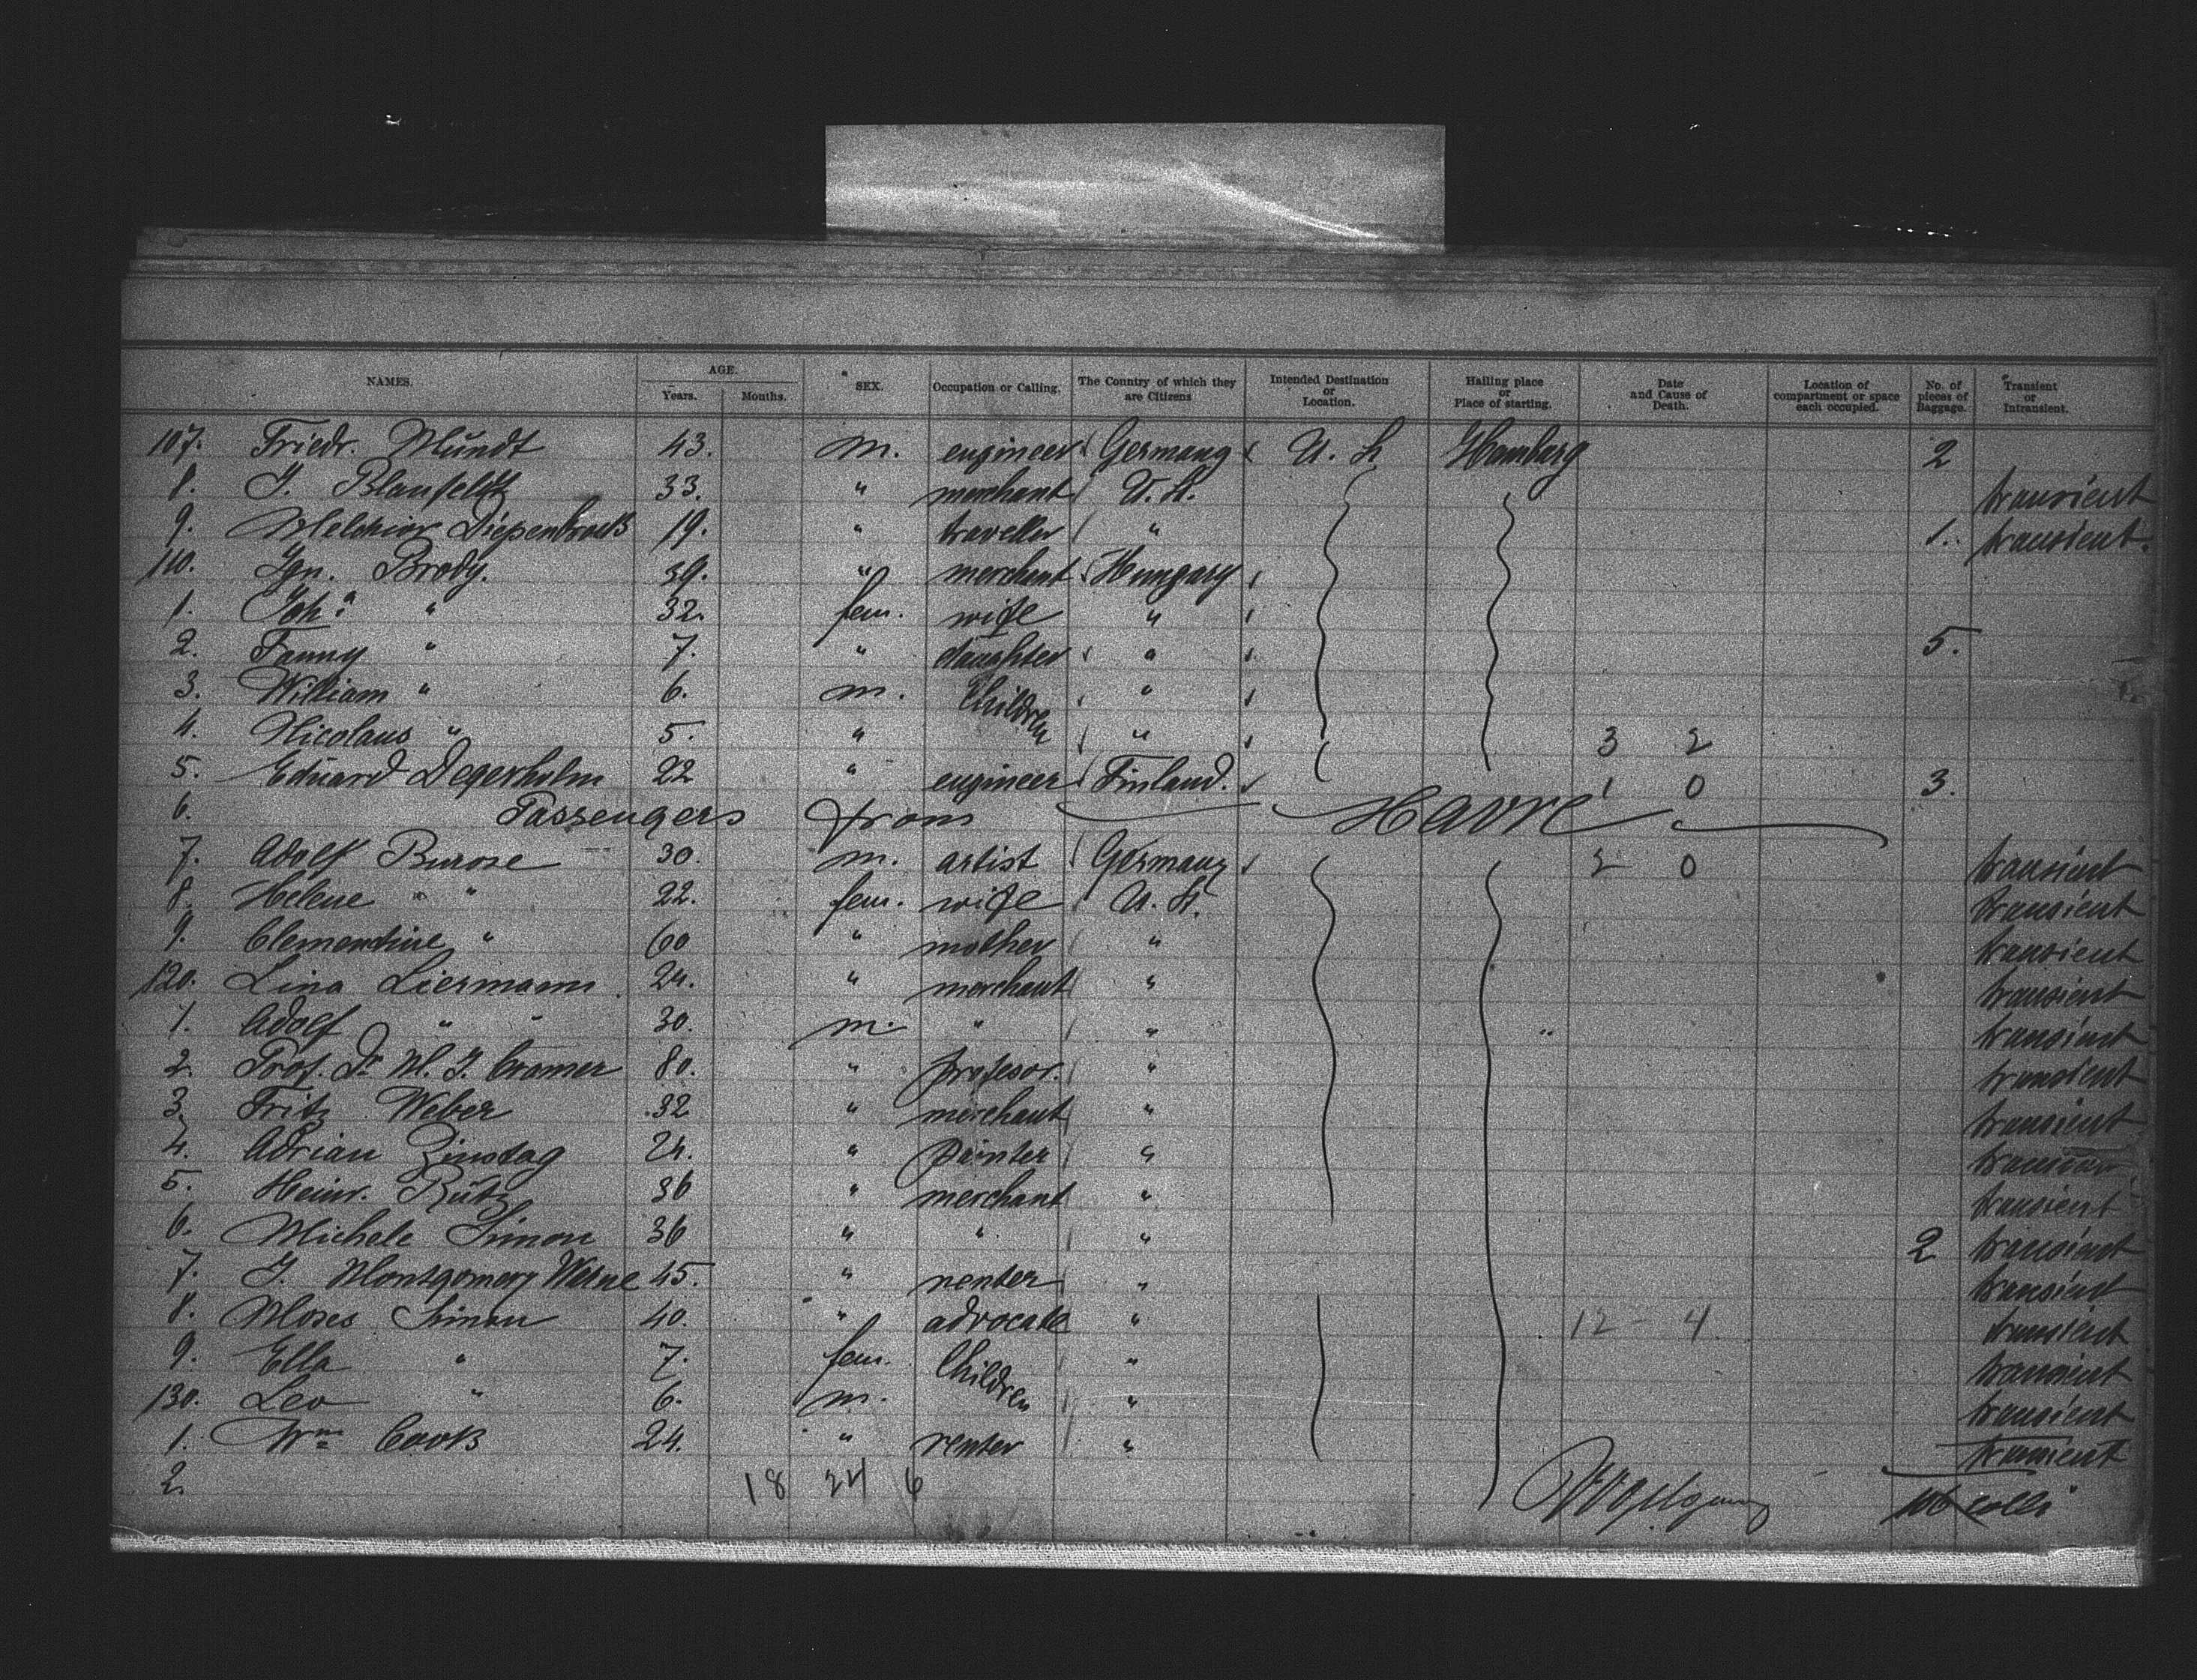 NAMES. AGE. Years. Months. SEX. Occupation or Calling. The Country of which they are Citizens Intended Destination or Location. Hailing place or Place of starting. Date and Cause of Death. Location of compartment or space each occupied. No. of pieces of Baggage. Transient or Intransient.
107. Friedr. Mundt 43. m. engineer Germany U. S. Hamburg 2
8. J. Blaufeldt 33. " merchant U. S. transient
9. Melchior Diepenbrock 19. " traveller " 1. transient.
110. Ign. Brody. 39. " merchant Hungary
1. Joh.a " 32. fem. wife "
2. Fanny " 7. " daughter " 5.
3. William " 6. m. Children "
4. Nicolaus " 5. " " 3 2
5. Eduard Degerholm 22 " engineer Finland. 1 0 3.
6. Passengers from Havre
7. Adolf Burose 30. m. artist Germany 2 0 transient
8. Helene " 22. fem. wife U. S. transient
9. Clementine " 60 " mother " transient
120. Lina Liermann 24. " merchant " transient
1. Adolf " 30. m. " " transient
2. Prof. Dr. M. J. Cramer 80. " profesor. " transient
3. Fritz Weber 32 " merchant " transient
4. Adrian Zinstag 24. " painter " transient
5. Heinr. Rütz 36 " merchant " transient
6. Michele Simon 36 " " " 2 transient
7. J. Montgomery 45. " renter " transient
8. Moses Simon 40. " advocate " 12 - 4 transient
9. Ella " 7. fem. Children " transient
130. Leo " 6. m. " transient
1. Wm Cook 24. " renter " transient
2. 18 24 6 106 colli